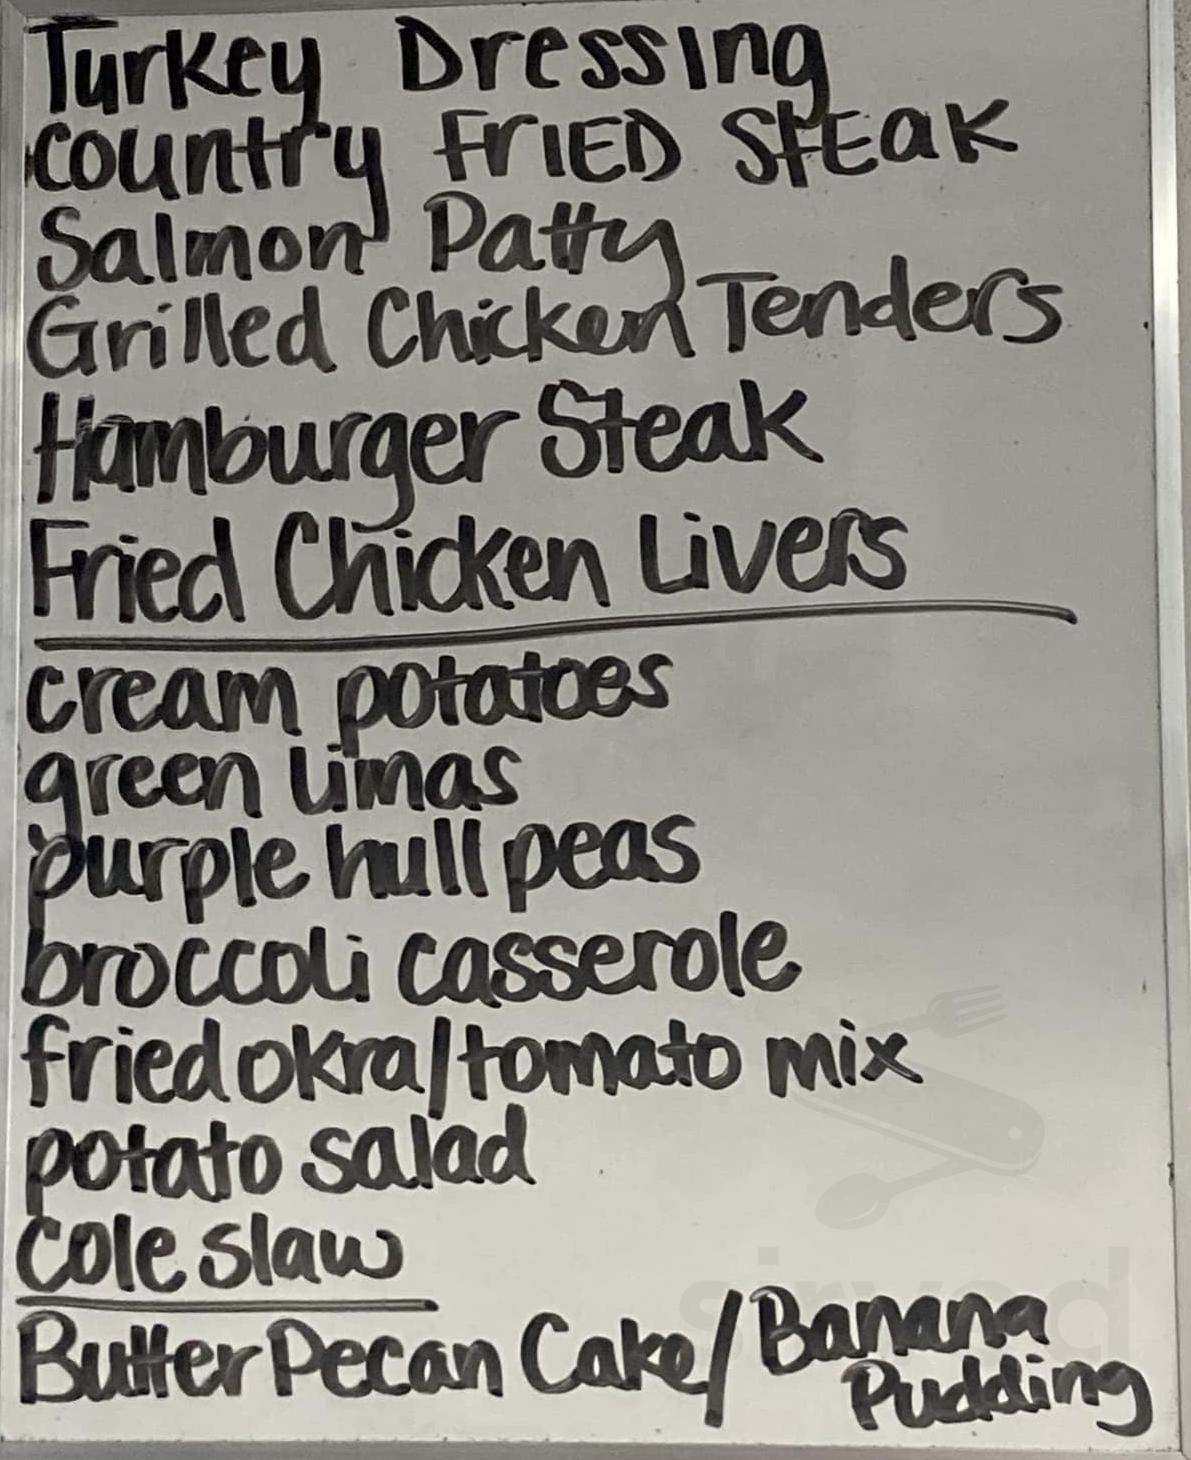 Turkey Dressing
Country FRIED STEAK
Salmon Patty
Grilled Chicken Tenders
Hamburger Steak
Fried Chicken Livers
cream potatoes
green limas
purple hull peas
broccoli casserole
fried okra/tomato mix
potato salad
cole slaw
Butter Pecan Cake/Banana
Pudding
sirved